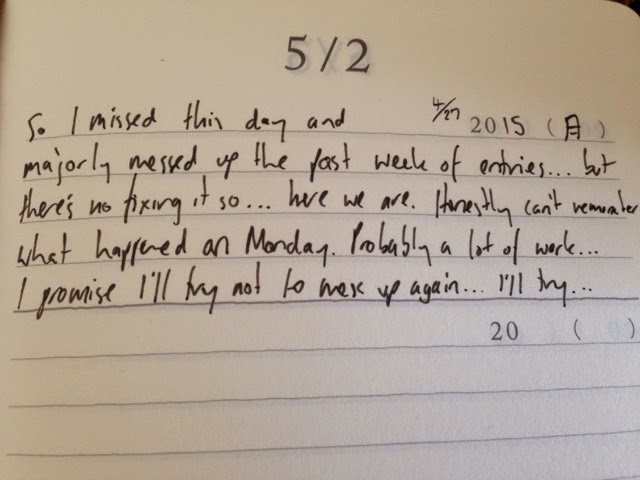 5/2
So I missed this day and 4/27 2015 (月)
majorly messed up the past week of entries... but
there's no fixing it so... here we are. Honestly can't remember
what happened on Monday. Probably a lot of work...
I promise I'll try not to mess up again... I'll try...
20 ( )